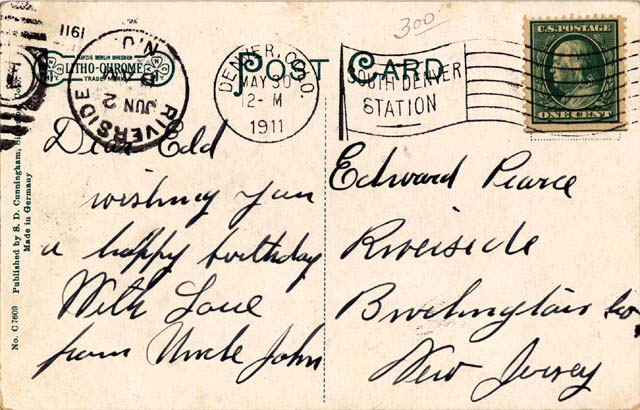 300
1911
LEIPZIG BERLIN DRESDEN
LITHO-CHROME
TRADE MARK
RIVERSIDE
JUN 2
N.J.
DENVER, COLO.
MAY 30
12-M
1911
POST CARD
SOUTH DENVER
STATION
U.S. POSTAGE
ONE CENT
Dear Edd
wishing you
a happy birthday
With Love
from Uncle John
Edward Pearce
Riverside
Burlington Co
New Jersey
No. C 7609 Published by S. D. Cunningham,
Made in Germany